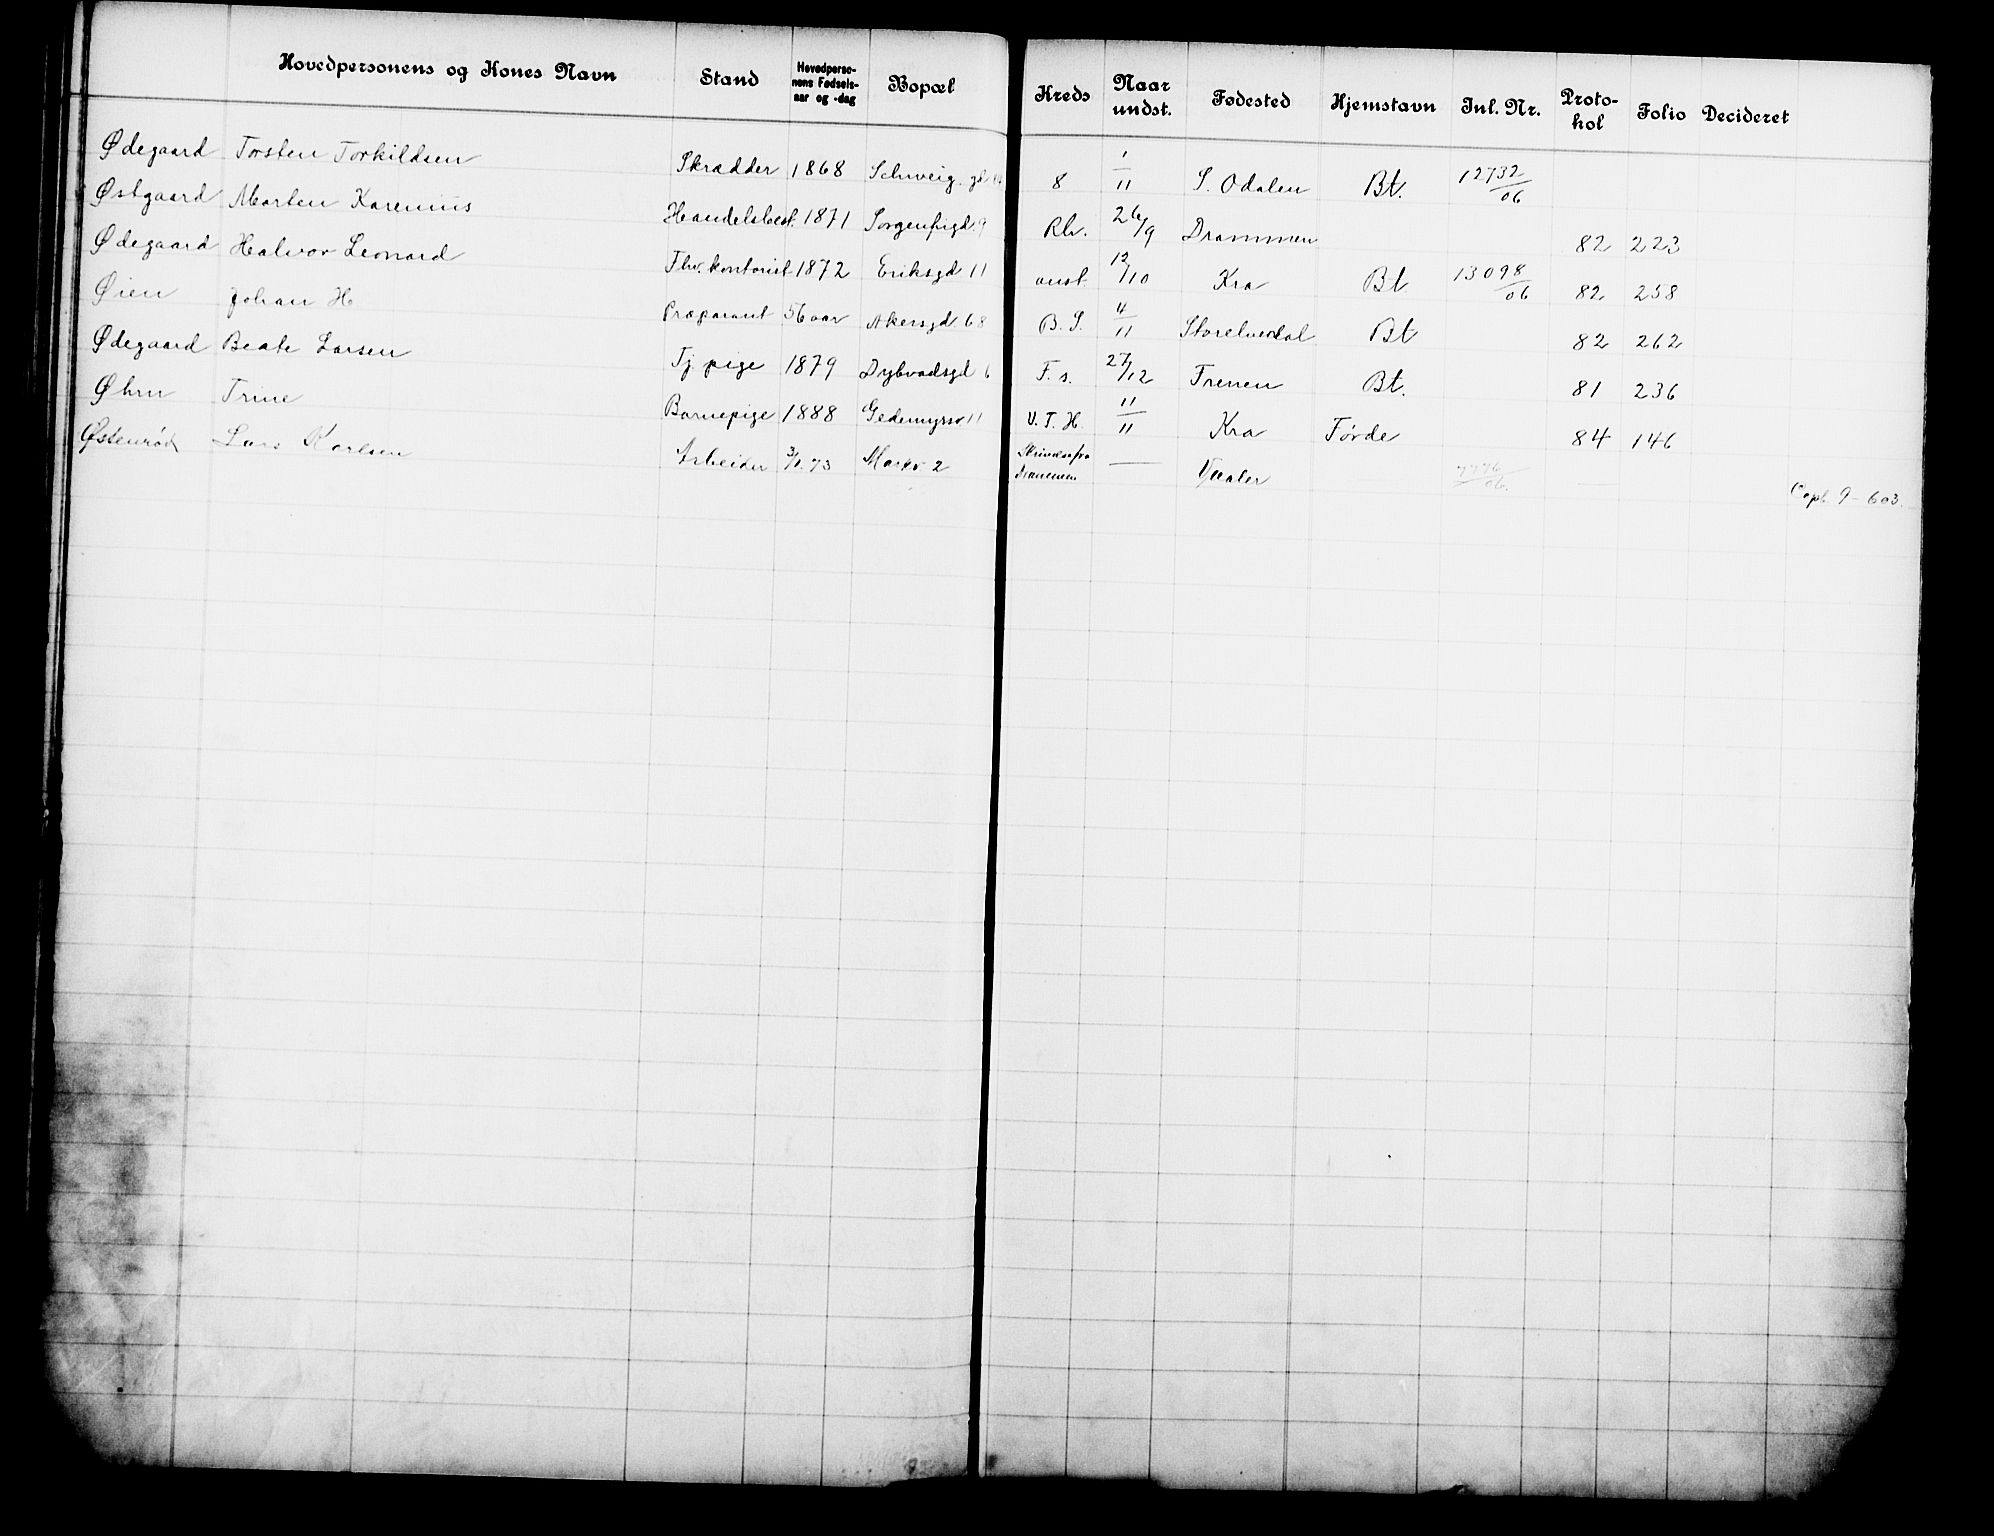 Hovedpersonens og Kones Navn Stand Hovedpersonens Fødselsaar og -dag Bopæl Kreds Naar undst. Fødested Hjemstavn Inl. Nr. Protokol Folio Decideret
Ødegaard Torsten Torkildsen Skrædder 1868 Schweig. gd 8 1/11 S. Odalen Bt. 12732/06
Østgaard Morten Karenius Handelsbest. 1871 Sorgenfrigd. 9 Rh. 26/9 Drammen 82 223
Ødegaard Halvor Leonard Fhv. kontorist 1872 Eriksgd 11 anst. 12/10 Kra Bt. 13098/06 82 258
Øien Johan H Præparant 56 aar Akersgd 68 B. S. 4/11 Storelvedal Bt 82 262
Ødegaard Beate Larsen Tj. pige 1879 Dybvadsgd 6 F. s. 27/12 Trenen Bt. 81 236
Øhrn Trine Barnepige 1888 Gedemyrsv 11 V. T. H. 11/11 Kra Førde 84 146
Østenrød Lars Karlsen Arbeider 3/1. 73 Markv 2 Skrivelse fra Drammen — Vaaler 7776/06. — Copb. 9 - 603.